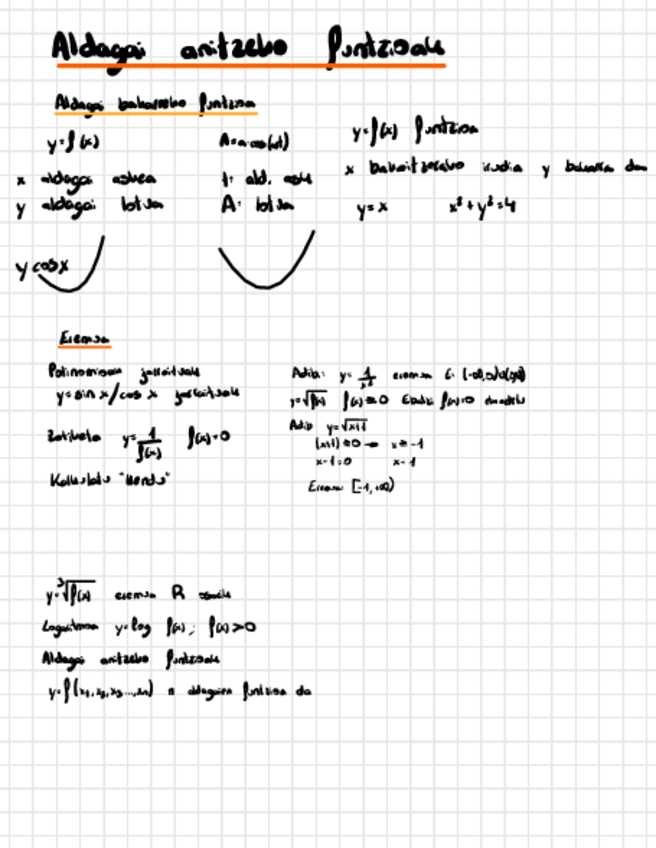 Aldagai anitzeko funtzioak
Aldagai bakarreko funtzioa
y=f(x)
x aldagai askea
y aldagai lotua
A=a·cos(wt)
t: ald. aske
A: lotua
y=f(x) funtzioa
x bakoitzerako irudia y bakarra da
y=x x²+y²=4
y cosx
Eremua
Polinomioak jarraituak
y=sin x/cos x jarraituak
Zatiketa y=1/f(x) f(x)=0
Kalkulatu "kendu"
Adib: y=1/x² eremua
y=√f(x) f(x)≥0
Adib y=√x+1
(x+1)≥0 → x≥-1
x-1=0 x-1
Eremua [-1,+∞)
y=³√f(x) eremua R
Logaritmoa y=log f(x); f(x)>0
Aldagai anitzeko funtzioak
y=f(x₁,x₂,x₃...,xₙ) n aldagaien funtzioa da